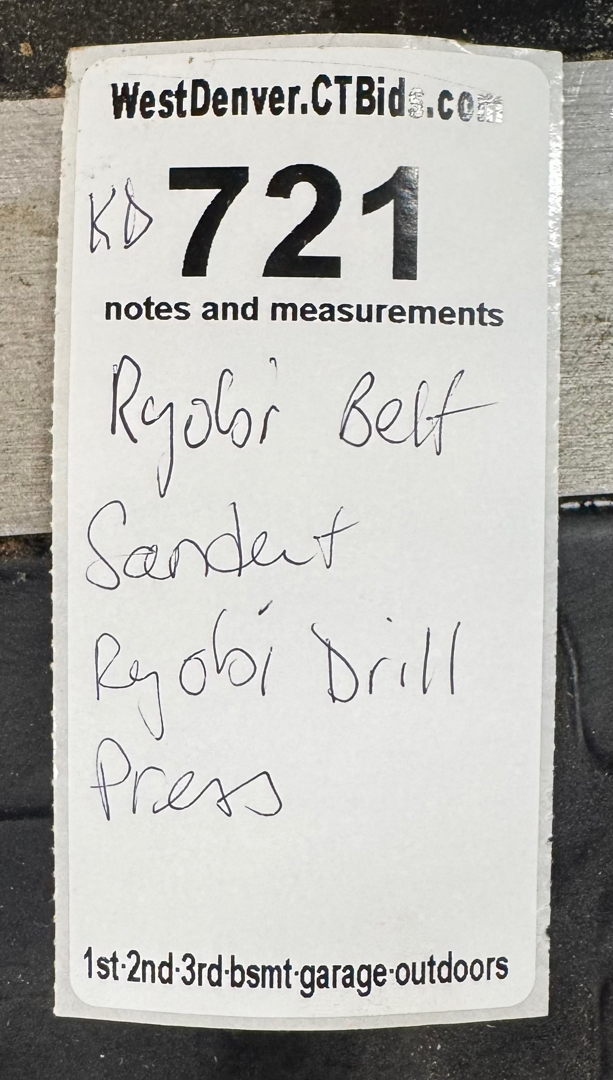 WestDenver.CTBids.com
KD 721
notes and measurements
Ryobi Belt
Sander +
Ryobi Drill
Press
1st·2nd·3rd·bsmt·garage·outdoors